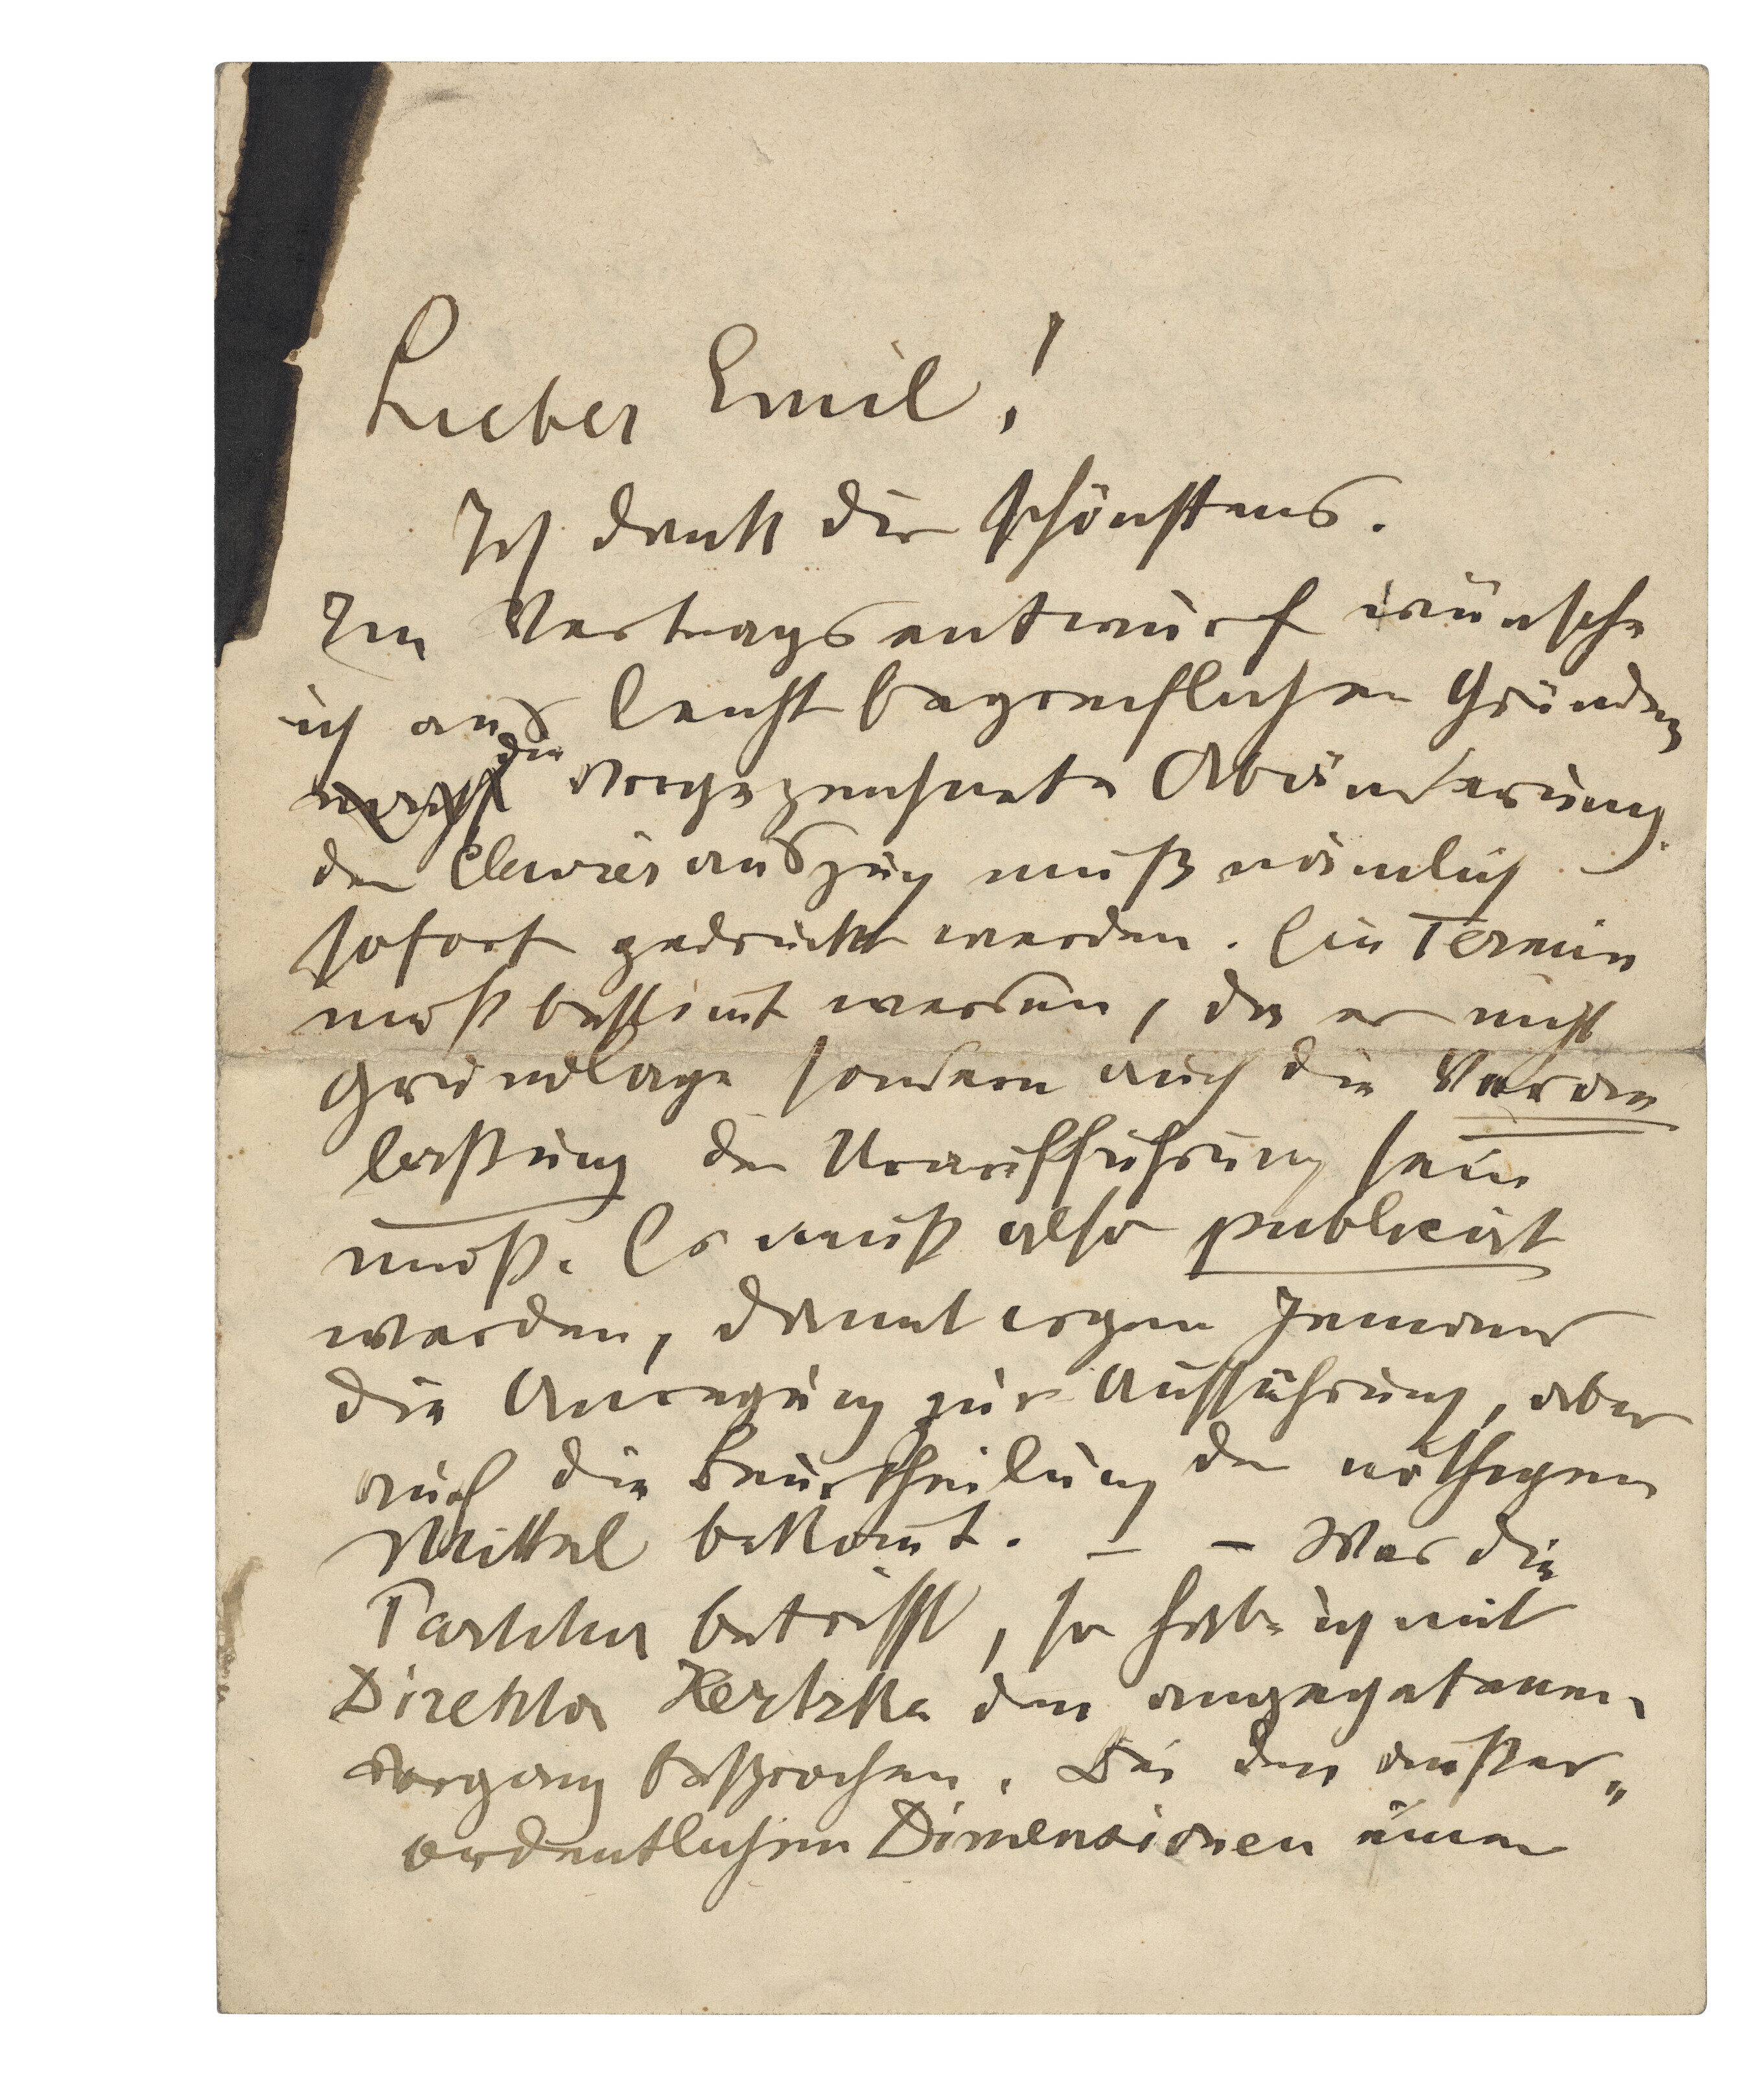 Lieber Emil!
Ich dank dir schönstens.
Im Vertragsentwurf wünsche
ich aus leicht begreiflichen Gründen
die vorgezeichnete Abänderung.
der Clavierauszug muß nämlich
sofort gedruckt werden. Ein Termin
muß bestimt werden, da er nicht
Grundlage sondern auch die Veran
lassung der Uraufführung sein
muß. Es muß also publicirt
werden, damit irgen Jemand
die Anregung zur Aufführung, aber
auch die Beurtheilung der nöthigen
Mittel bekomt. – – Was die
Partitur betrifft, so habe ich mit
Direktor Hertzka den angegebenen
Vorgang besprochen. Bei den außer„
ordentlichen Dimensionen einer